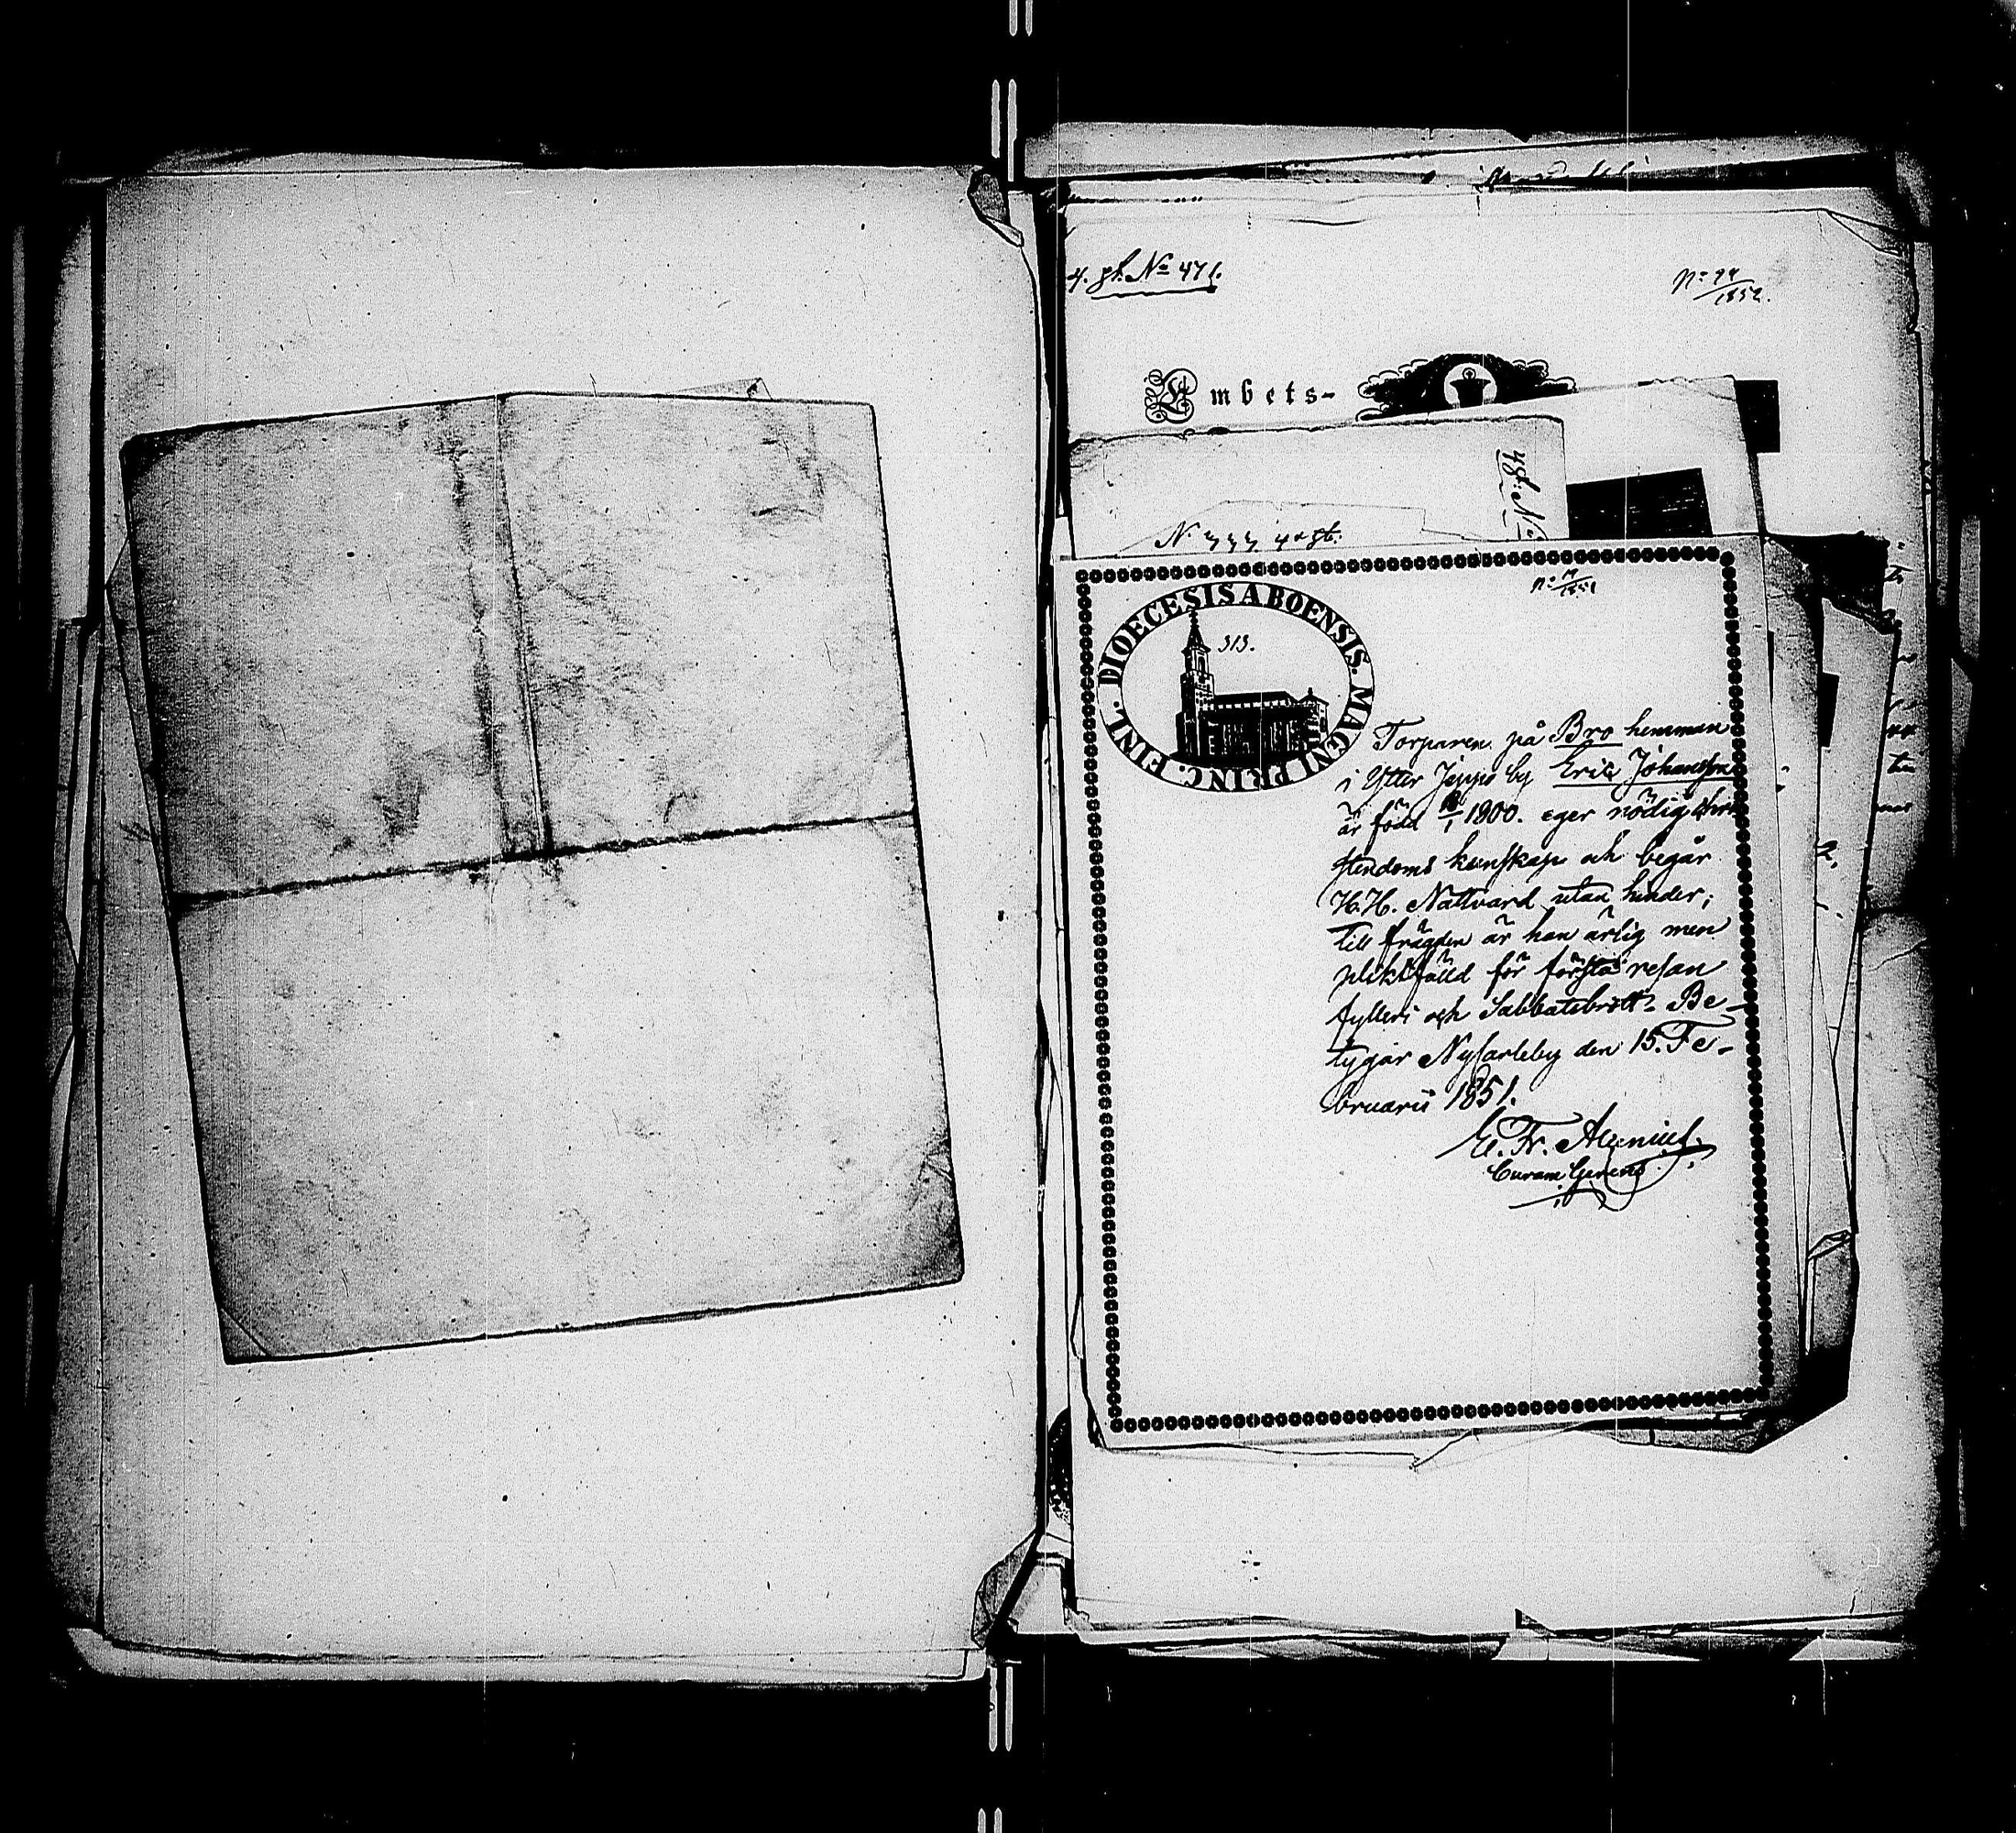 4. gb. No 471.
No 94/1852.
Embets-
48b: No
N. 777 4 a gb:
No 17/1851
DIOECESIS ABOENSIS. MAGNI PRINC. FINL.
313.
Torparen på Bro hemman
i Ytter Jeppo by Eric Johansson
är född 12/1 1800. eger nödig Chri-
stendoms kunskap och begår
H.H. Nattvard utan hinder;
till frägden är han ärlig men
pliktfälld för första resan
fylleri och Sabbatsbrott. Be-
tygar Nykarleby den 15. Fe-
bruarii 1851.
E. Fr. Alcenius.
Curam Gerens